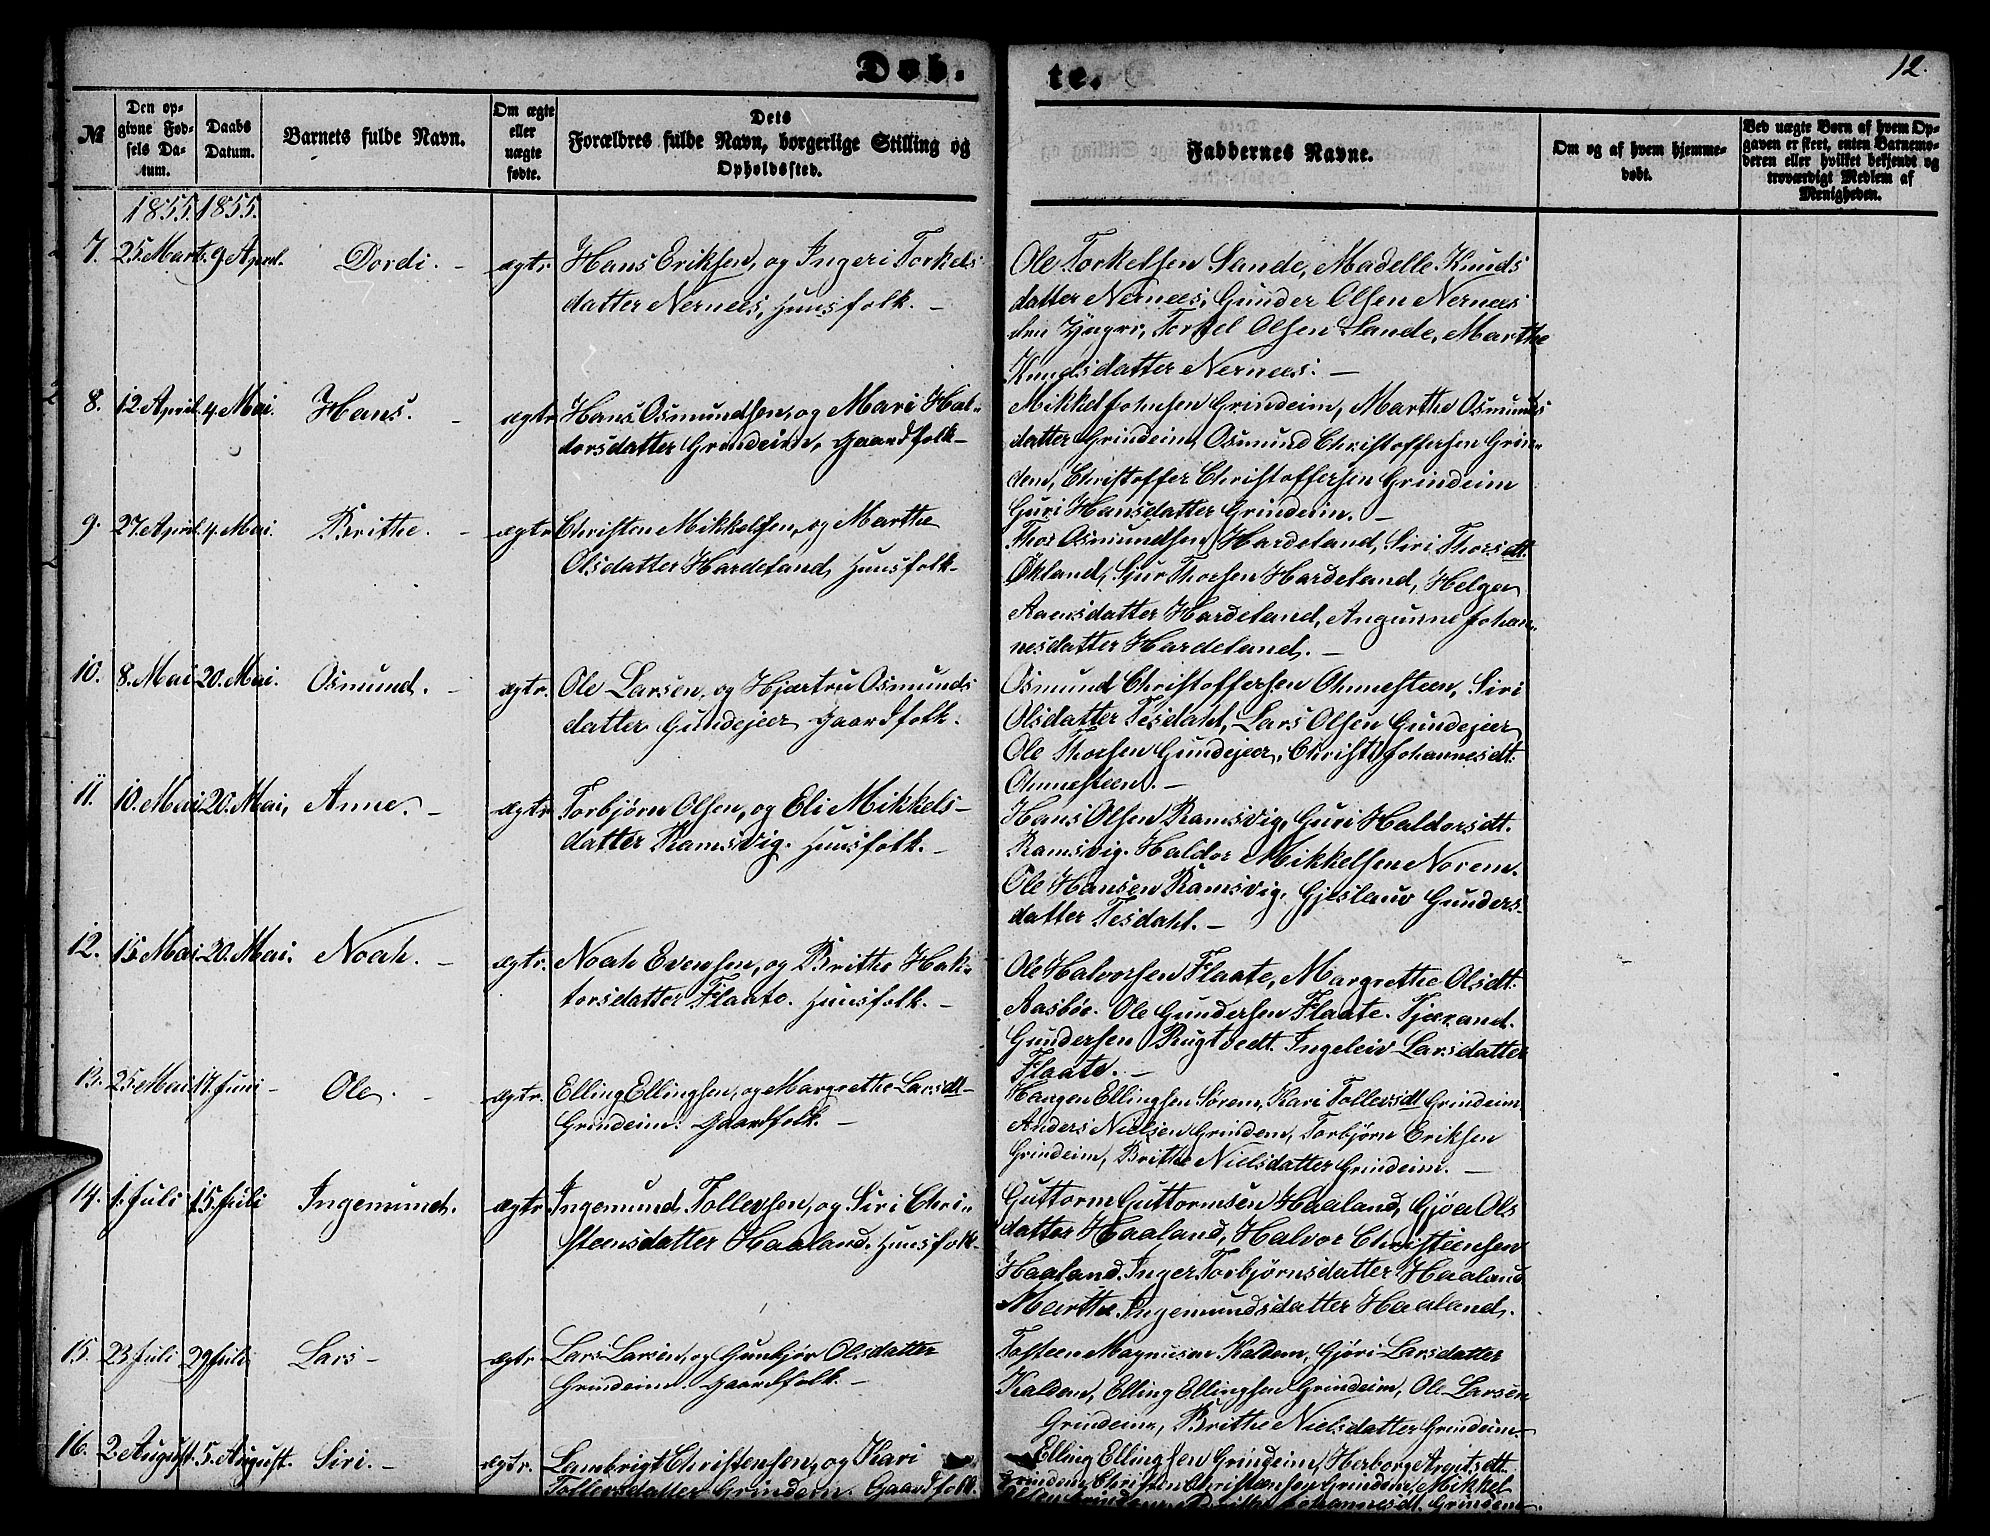 Døb. te.
12.
№
Den opgivne Fødsels Datum.
Daabs Datum.
Barnets fulde Navn.
Om ægte eller uægte fødte.
Dets Forældres fulde Navn, borgerlige Stilling og Opholdssted.
Faddernes Navne.
Om og af hvem hjemmedøbt.
Ved uægte Børn af hvem Opgaven er skeet, enten Barnemoderen eller hvilket bekjendt og troværdigt Medlem af Menigheden.
1855. 1855.
7. 25. Marts. 9 April. Dordi. – ægte.
Hans Eriksen, og Ingeri Torkels
datter Nernæs, Huusfolk. –
Ole Torkelsen Sande, Madelle Knuds
datter Nernæs, Gunder Olsen Nernæs
den Yngre, Torkel Olsen Sande, Marthe
Knudsdatter Nernæs. –
8. 12. April. 4. Mai. Hans. – ægte
Hans Osmundsen, og Mari Hal-
dorsdatter Grindeim, Gaardfolk –
Mikkel Johnsen Grindeim, Marthe Osmunds
datter Grindeim, Osmund Christoffersen Grin-
dem, Christoffer Christoffersen Grindeim
Guri Hansdatter Grindeim. –
9. 27. April. 4. Mai. Brithe. – ægte
Christen Mikkelsen, og Marthe
Olsdatter Hardeland, Huusfolk –
Thor Osmundsen Hardeland, Siri Thorsdt.
Økland, Sjur Thorsen Hardeland, Helga
Aamsdatter Hardeland, Angunne Johan-
nesdatter Hardeland. –
10. 8. Mai 20. Mai. Osmund. – ægte.
Ole Larsen, og Hjertru Osmunds
datter Gundejeer, Gaardfolk.
Osmund Christoffersen Ohmesteen, Siri
Olsdatter Tesdahl, Lars Olsen Gundejeer
Ole Thorsen Gundejeer, Christi Johannesdt.
Ohmesteen. –
11. 10. Mai 20. Mai, Anne. – ægte
Torbjørn Olsen, og Eli Mikkels-
datter Ramsvig. Huusfolk. –
Hans Olsen Ramsvig, Guri Haldorsdt.
Ramsvig. Haldor Mikkelsen Norem.
Ole Hansen Ramsvig, Gjeslauv Gunders-
datter Tesdahl. –
12. 15. Mai 20. Mai. Noah. – ægte.
Noah Evensen, og Brithe Hak-
torsdatter Flaate. Huusfolk. –
Ole Halvorsen Flaate, Margrethe Olsdt.
Aasbøe. Ole Gundersen Flaate. Tjerand.
Gundersen Rugtvedt. Ingeleiv Larsdatter
Flaate. –
13. 25. Mai 17. Juni – Ole. – ægte.
Elling Ellingsen, og Margrethe Larsdt –
Grindeim. Gaardfolk. –
Haugen Ellingsen Sørem, Kari Tollevsdt Grindeim
Anders Nielsen Grindem, Torbjørn Eriksen
Grindeim, Brithe Nielsdatter Grindeim. –
14. 1. Juli 15. Juli Ingemund. ægte
Ingemund Tollevsen, og Siri Chri-
steensdatter Haaland. Huusfolk –
Guttorm Guttormsen Haaland, Gjøa Ols
datter Haaland, Halvor Christeensen
Haaland. Inger Torbjørnsdatter Haaland
Marthe Ingemundsdatter Haaland.
15. 23 Juli 29 Juli Lars – ægte
Lars Larsen, og Gunhjør Olsdatter
Grindeim. Gaardfolk. –
Tosteen Magnusen Kaldem, Gjøri Larsdatter
Kaldem, Elling Ellingsen Grindeim, Ole Larsen
Grindeim, Brithe Nielsdatter Grindeim.
16. 2. August. 5. August. Siri. – ægte.
Lambrigt Christensen, og Kari
Tollevsdatter Grindem. Gaardfolk.
Elling Ellingsen Grindeim, Herborg Arentsdt.
Grindem, Christen Christensen Grindem, Mikkel
Olsen Grindem, Brithe Johannesdt. Grindem.